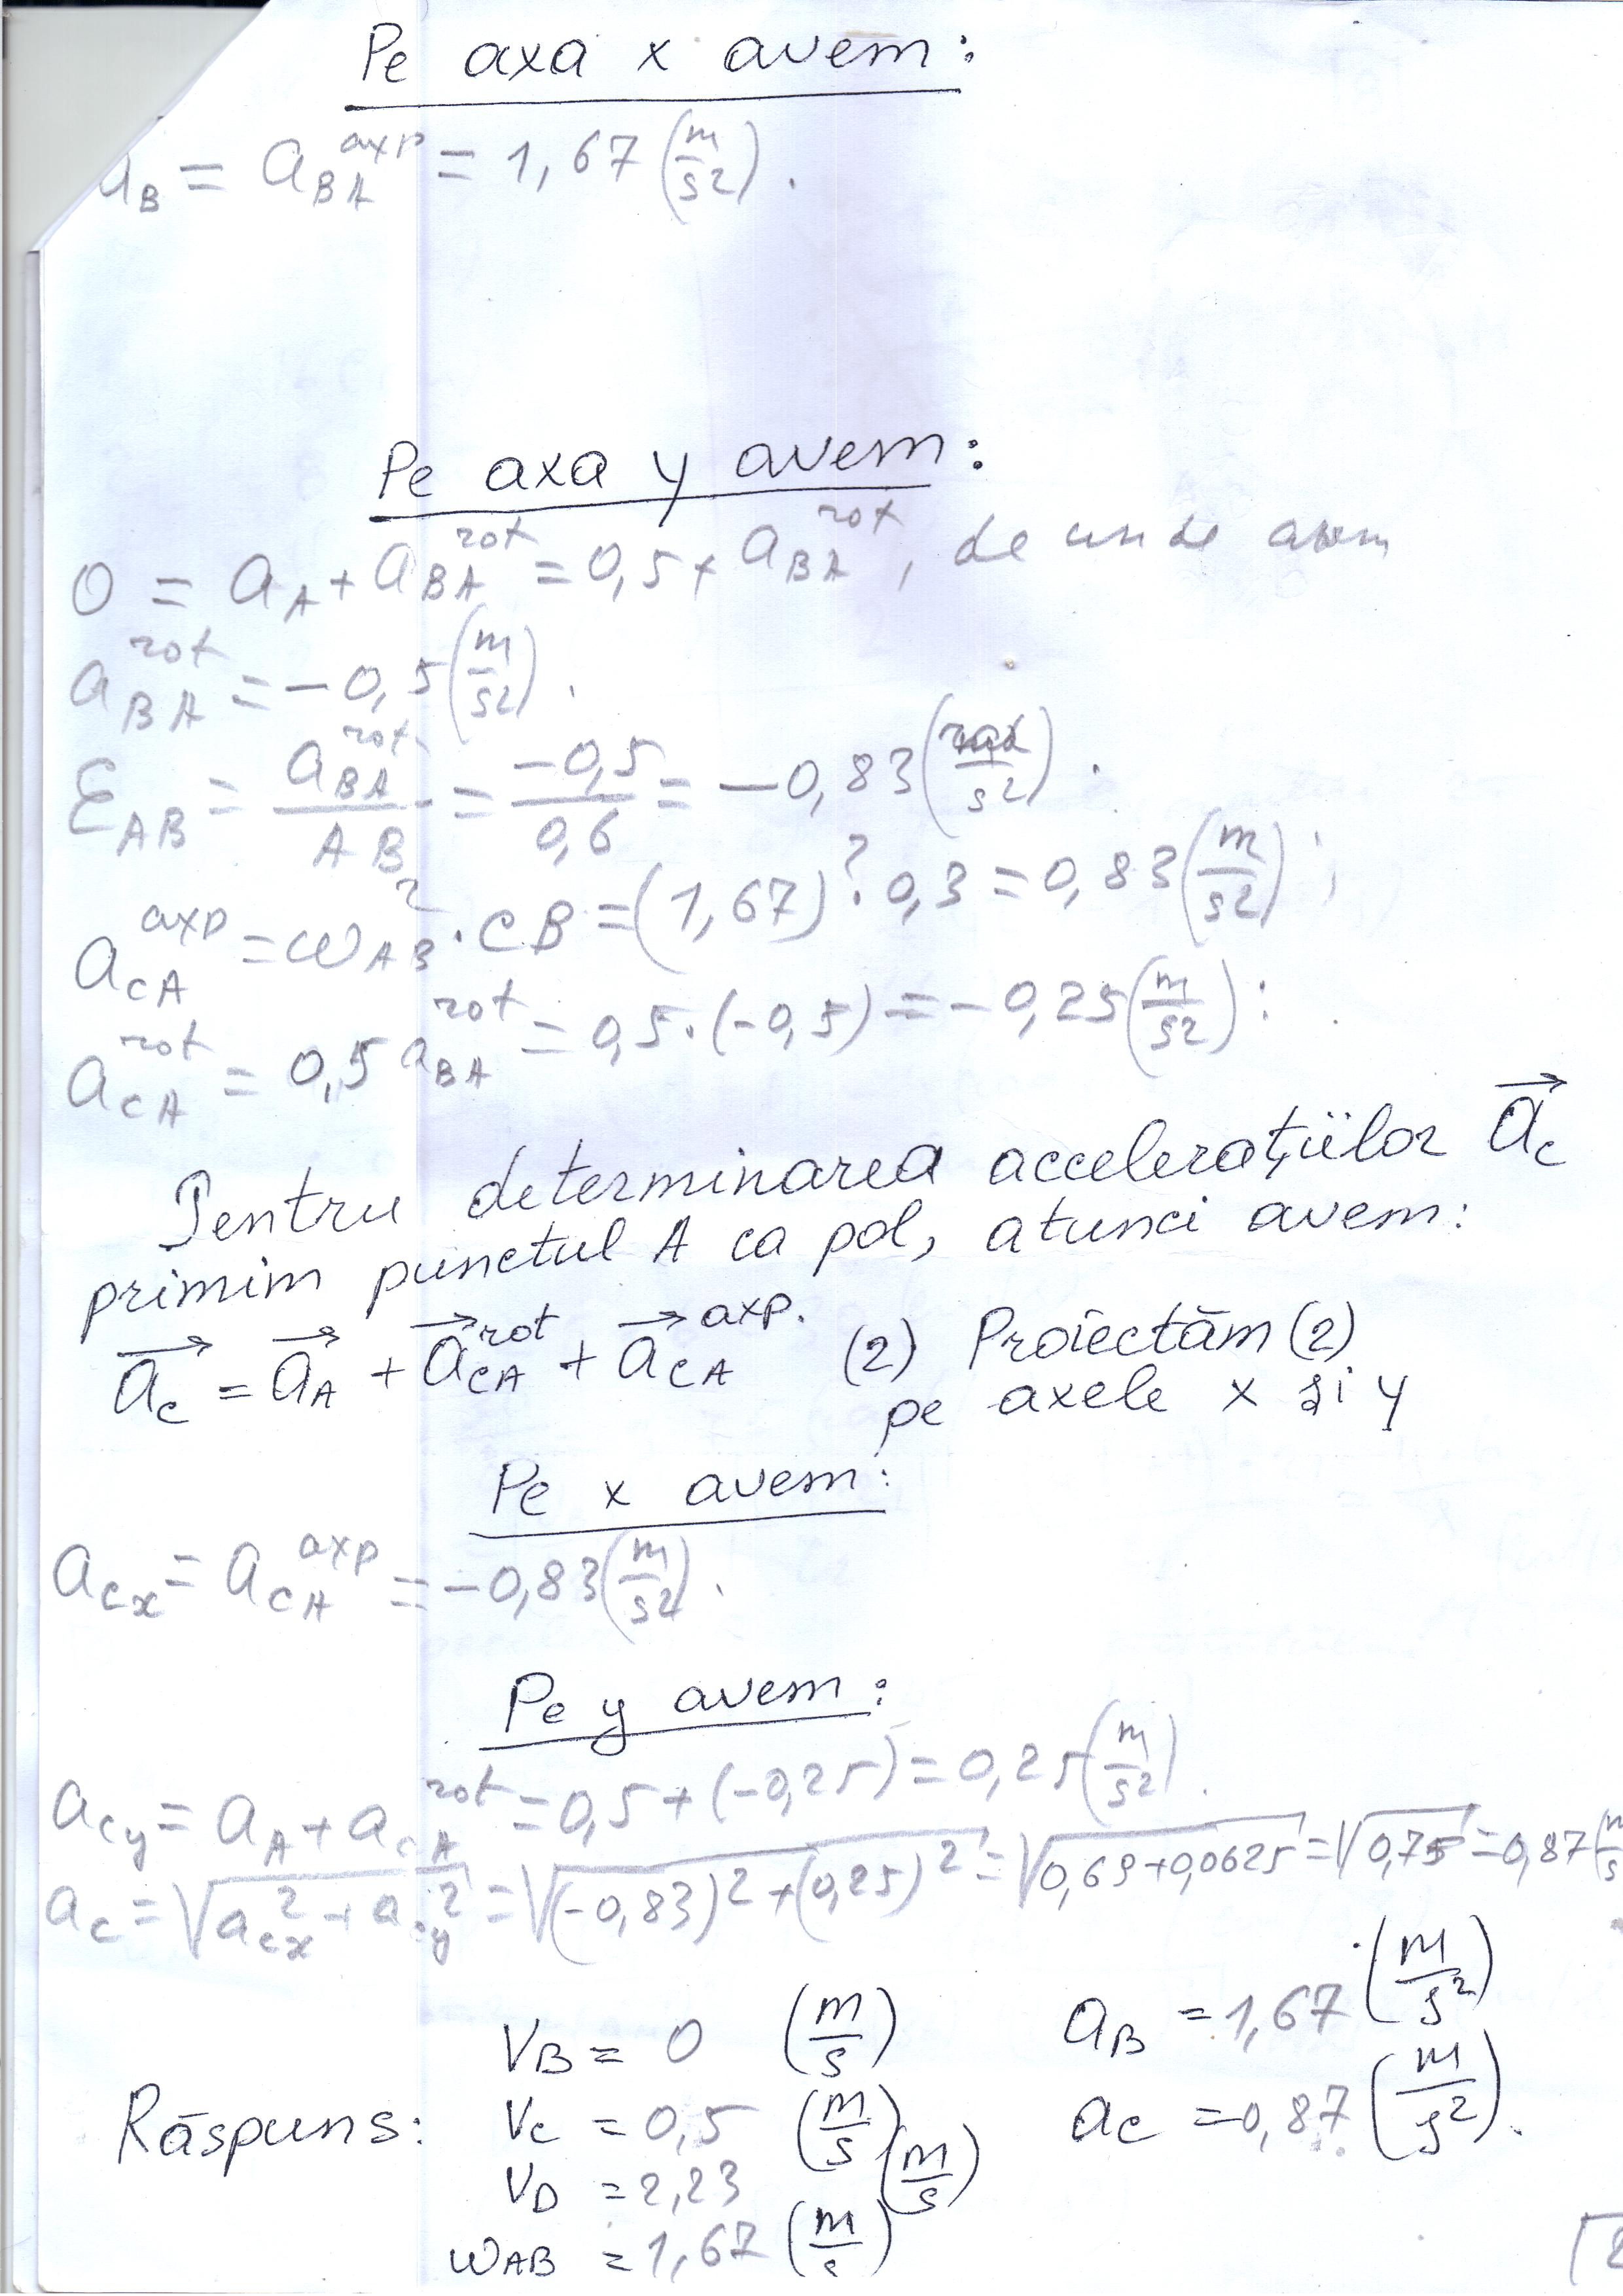 Pe axa x avem:
a_B = a_BA^axp = 1,67 (m/s²).
Pe axa y avem:
0 = a_A + a_BA^rot = 0,5 + a_BA^rot, de unde avem
a_BA^rot = -0,5 (m/s²).
Ɛ_AB = a_BA^rot / AB = -0,5 / 0,6 = -0,83 (rad/s²).
a_CA^axp = ω_AB² · CB = (1,67)² · 0,3 = 0,83 (m/s²);
a_CA^rot = 0,5 a_BA^rot = 0,5 · (-0,5) = -0,25 (m/s²);
Pentru determinarea accelerațiilor a⃗_c
primim punctul A ca pol, atunci avem:
a⃗_c = a⃗_A + a⃗_CA^rot + a⃗_CA^axp. (2) Proiectăm (2)
pe axele x și y
Pe x avem:
a_cx = a_CA^axp = -0,83 (m/s²).
Pe y avem:
a_cy = a_A + a_CA^rot = 0,5 + (-0,25) = 0,25 (m/s²).
a_c = √(a_cx² + a_cy²) = √((-0,83)² + (0,25)²) = √(0,69+0,0625) = √0,75 = 0,87 (m/s
V_B = 0 (m/s) a_B = 1,67 (m/s²)
Răspuns: V_c = 0,5 (m/s) a_c = 0,87 (m/s²).
V_D = 2,23 (m/s)
ω_AB = 1,67 (m/s)